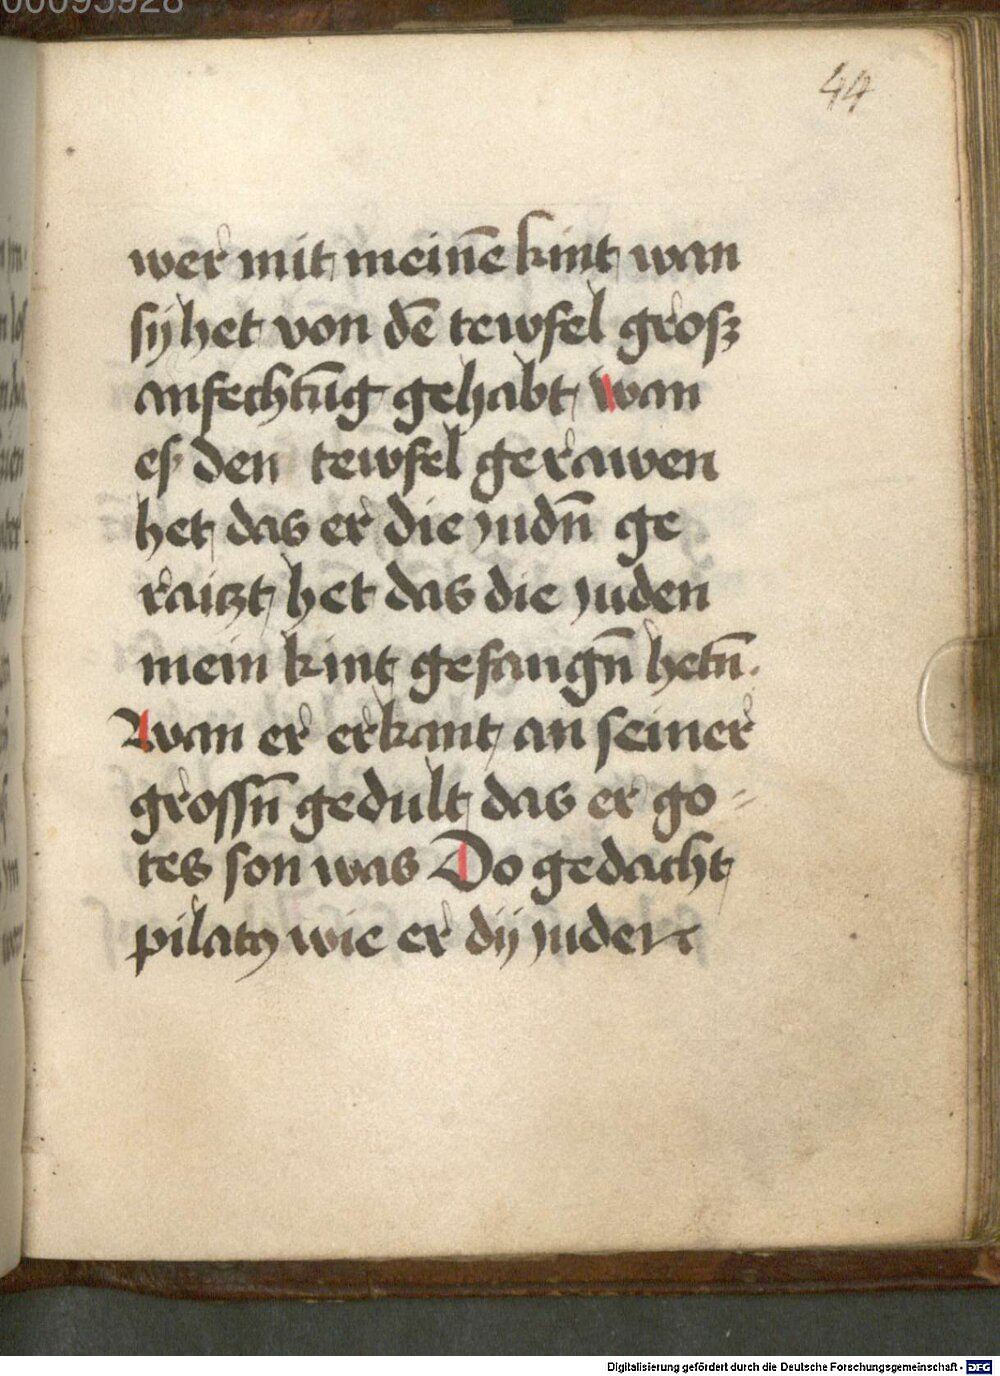 44
wer mit meinē kint wan
sÿ het von dē tewfel grosz
anfechtūg gehabt wan
es den tewfel gerawen
het das er die judn̄ ge
raitzt het das die juden
mein kint gefangn̄ hetn̄.
Wan er erkant an seiner
grossn̄ gedult das er go=
tes son was Do gedacht
pilatꝯ wie er dÿ juden
Digitalisierung gefördert durch die Deutsche Forschungsgemeinschaft - DFG